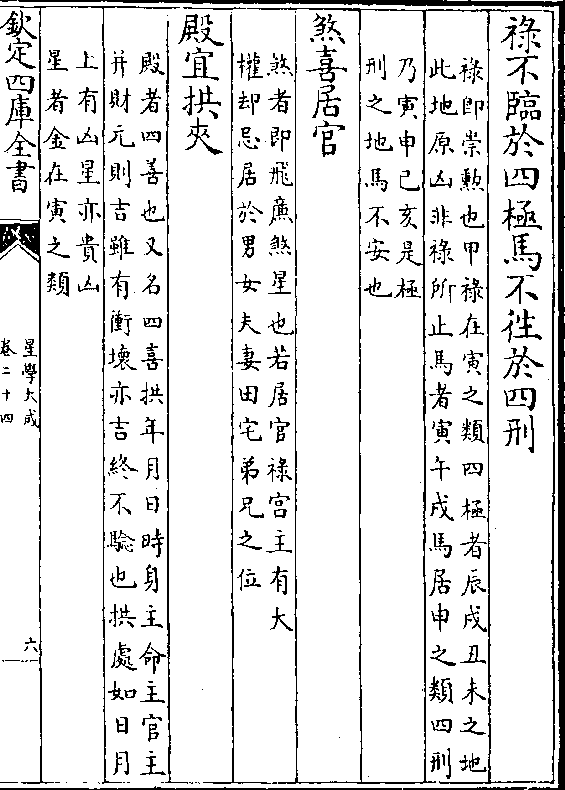 祿不臨於四極馬不徃於四刑
祿即崇勲也甲祿在寅之類四極者辰戌丑未之地
此地原凶非祿所止馬者寅午戌馬居申之類四刑
乃寅申巳亥是極
刑之地馬不安也
煞喜居官
煞者即飛廉煞星也若居官祿宫主有大
權却忌居於男女夫妻田宅弟兄之位
殿宜拱夾
殿者四善也又名四喜拱年月日時身主命主官主
并財元則吉雖有衝壞亦吉終不騐也拱處如日月
上有凶星亦貴凶
星者金在寅之類
欽定四庫全書
星學大成
卷二十四
六